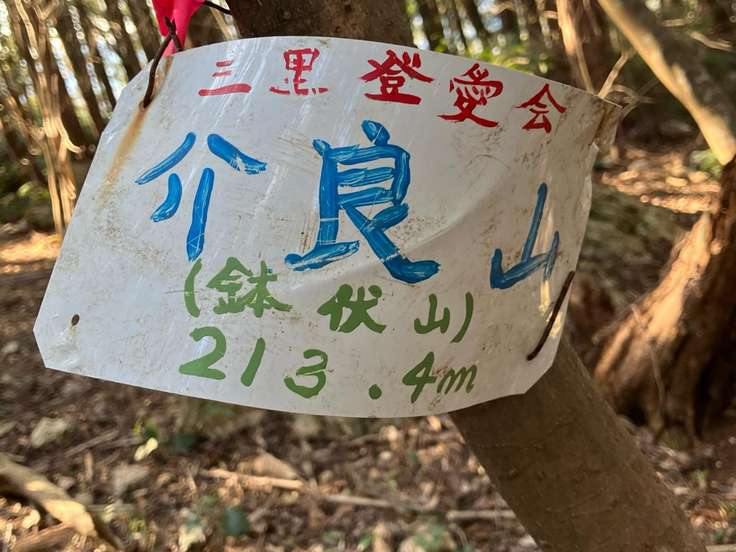 三黒登愛会
介良山
(鉢伏山)
213.4m